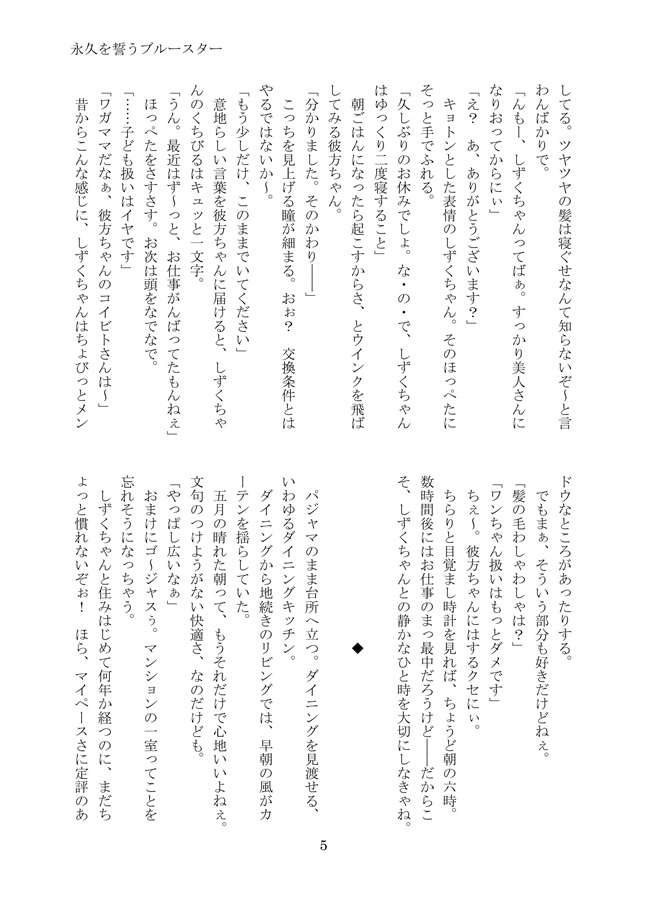 永久を誓うブルースター
してる。ツヤツヤの髪は寝ぐせなんて知らないぞ～と言
わんばかりで。
「んもー、しずくちゃんってばぁ。すっかり美人さんに
なりおってからにぃ」
「え？　あ、ありがとうございます？」
　キョトンとした表情のしずくちゃん。そのほっぺたに
そっと手でふれる。
「久しぶりのお休みでしょ。な・の・で、しずくちゃん
はゆっくり二度寝すること」
　朝ごはんになったら起こすからさ、とウインクを飛ば
してみる彼方ちゃん。
「分かりました。そのかわり――」
　こっちを見上げる瞳が細まる。おぉ？　交換条件とは
やるではないか～。
「もう少しだけ、このままでいてください」
　意地らしい言葉を彼方ちゃんに届けると、しずくちゃ
んのくちびるはキュッと一文字。
「うん。最近はず～っと、お仕事がんばってたもんねぇ」
　ほっぺたをさすさす。お次は頭をなでなで。
「……子ども扱いはイヤです」
「ワガママだなぁ、彼方ちゃんのコイビトさんは～」
　昔からこんな感じに、しずくちゃんはちょびっとメン
ドウなところがあったりする。
　でもまぁ、そういう部分も好きだけどねぇ。
「髪の毛わしゃわしゃは？」
「ワンちゃん扱いはもっとダメです」
　ちぇ～。彼方ちゃんにはするクセにぃ。
　ちらりと目覚まし時計を見れば、ちょうど朝の六時。
数時間後にはお仕事のまっ最中だろうけど――だからこ
そ、しずくちゃんとの静かなひと時を大切にしなきゃね。
◆
　パジャマのまま台所へ立つ。ダイニングを見渡せる、
いわゆるダイニングキッチン。
　ダイニングから地続きのリビングでは、早朝の風がカ
ーテンを揺らしていた。
　五月の晴れた朝って、もうそれだけで心地いいよねぇ。
文句のつけようがない快適さ、なのだけども。
「やっぱし広いなぁ」
　おまけにゴ～ジャスぅ。マンションの一室ってことを
忘れそうになっちゃう。
　しずくちゃんと住みはじめて何年か経つのに、まだち
ょっと慣れないぞぉ！　ほら、マイペースさに定評のあ
5